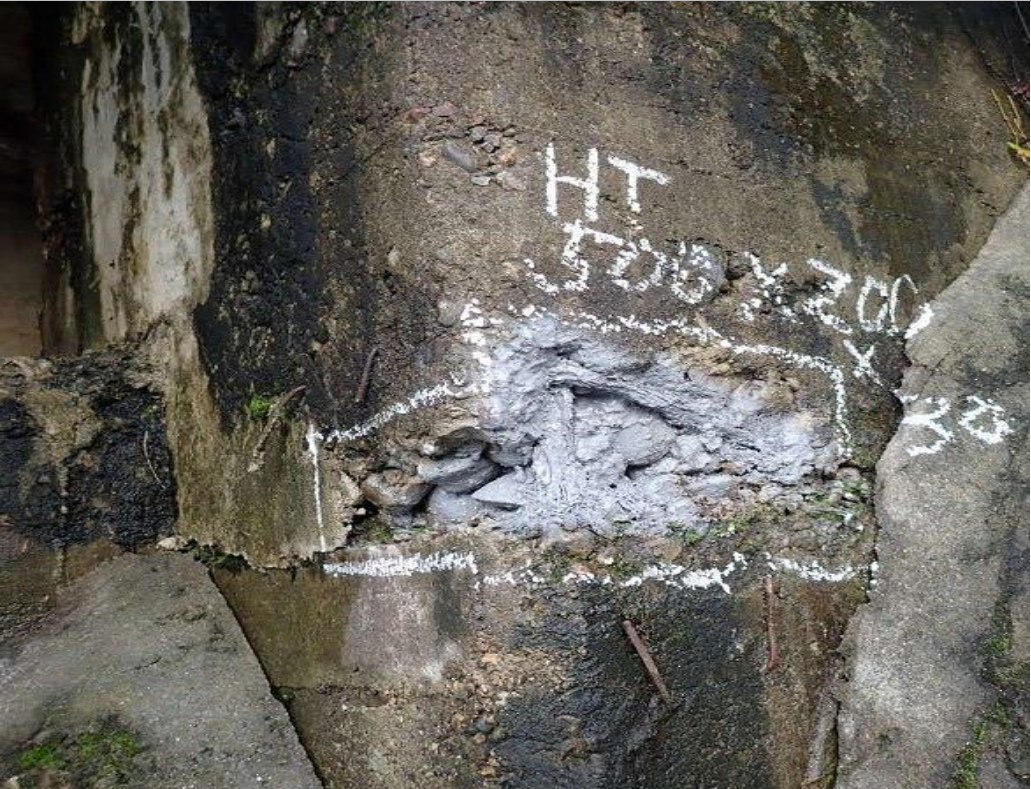 HT
500 x 200
x
30